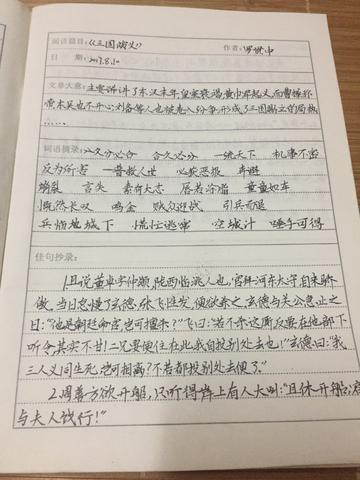 阅读篇目:《三国演义》 作者:罗贯中
日 期: 2017.8.20
文章大意:主要讲计了东汉末年皇室衰弱,黄巾军起义,而曹操孙
策本是也不齐心刘备等人也被卷入纷争,形成了三国鼎立的局势
……
词语摘录:久分必合 合久必分 一统天下 机事不密
反为所害 一普救人世 必获恶报 奔避
崩裂 言失 素有大志 唇若涂脂 童童如车
慨然长叹 鸣金 贼众迎战 引兵而退
兵临地城下 慌忙逃窜 空城计 唾手可得
佳句抄录:
1.且说董卓字仲颖,陇西临洮人也,官拜河东太守,自来骄
傲。当日怠慢了玄德,张飞性发,便欲杀之。玄德与关公急止之
曰:“他是朝廷命官,岂可擅杀?”飞曰:“若不杀这厮,反要在他部下
听令,其实不甘!二兄要便住在此,我自投别处去也!”玄德曰:“我
三人义同生死,岂可相离?不若都投别处去便了。”
2.周善方欲开船,只听得岸上有人大叫:“且休开船,容
与夫人饯行!”